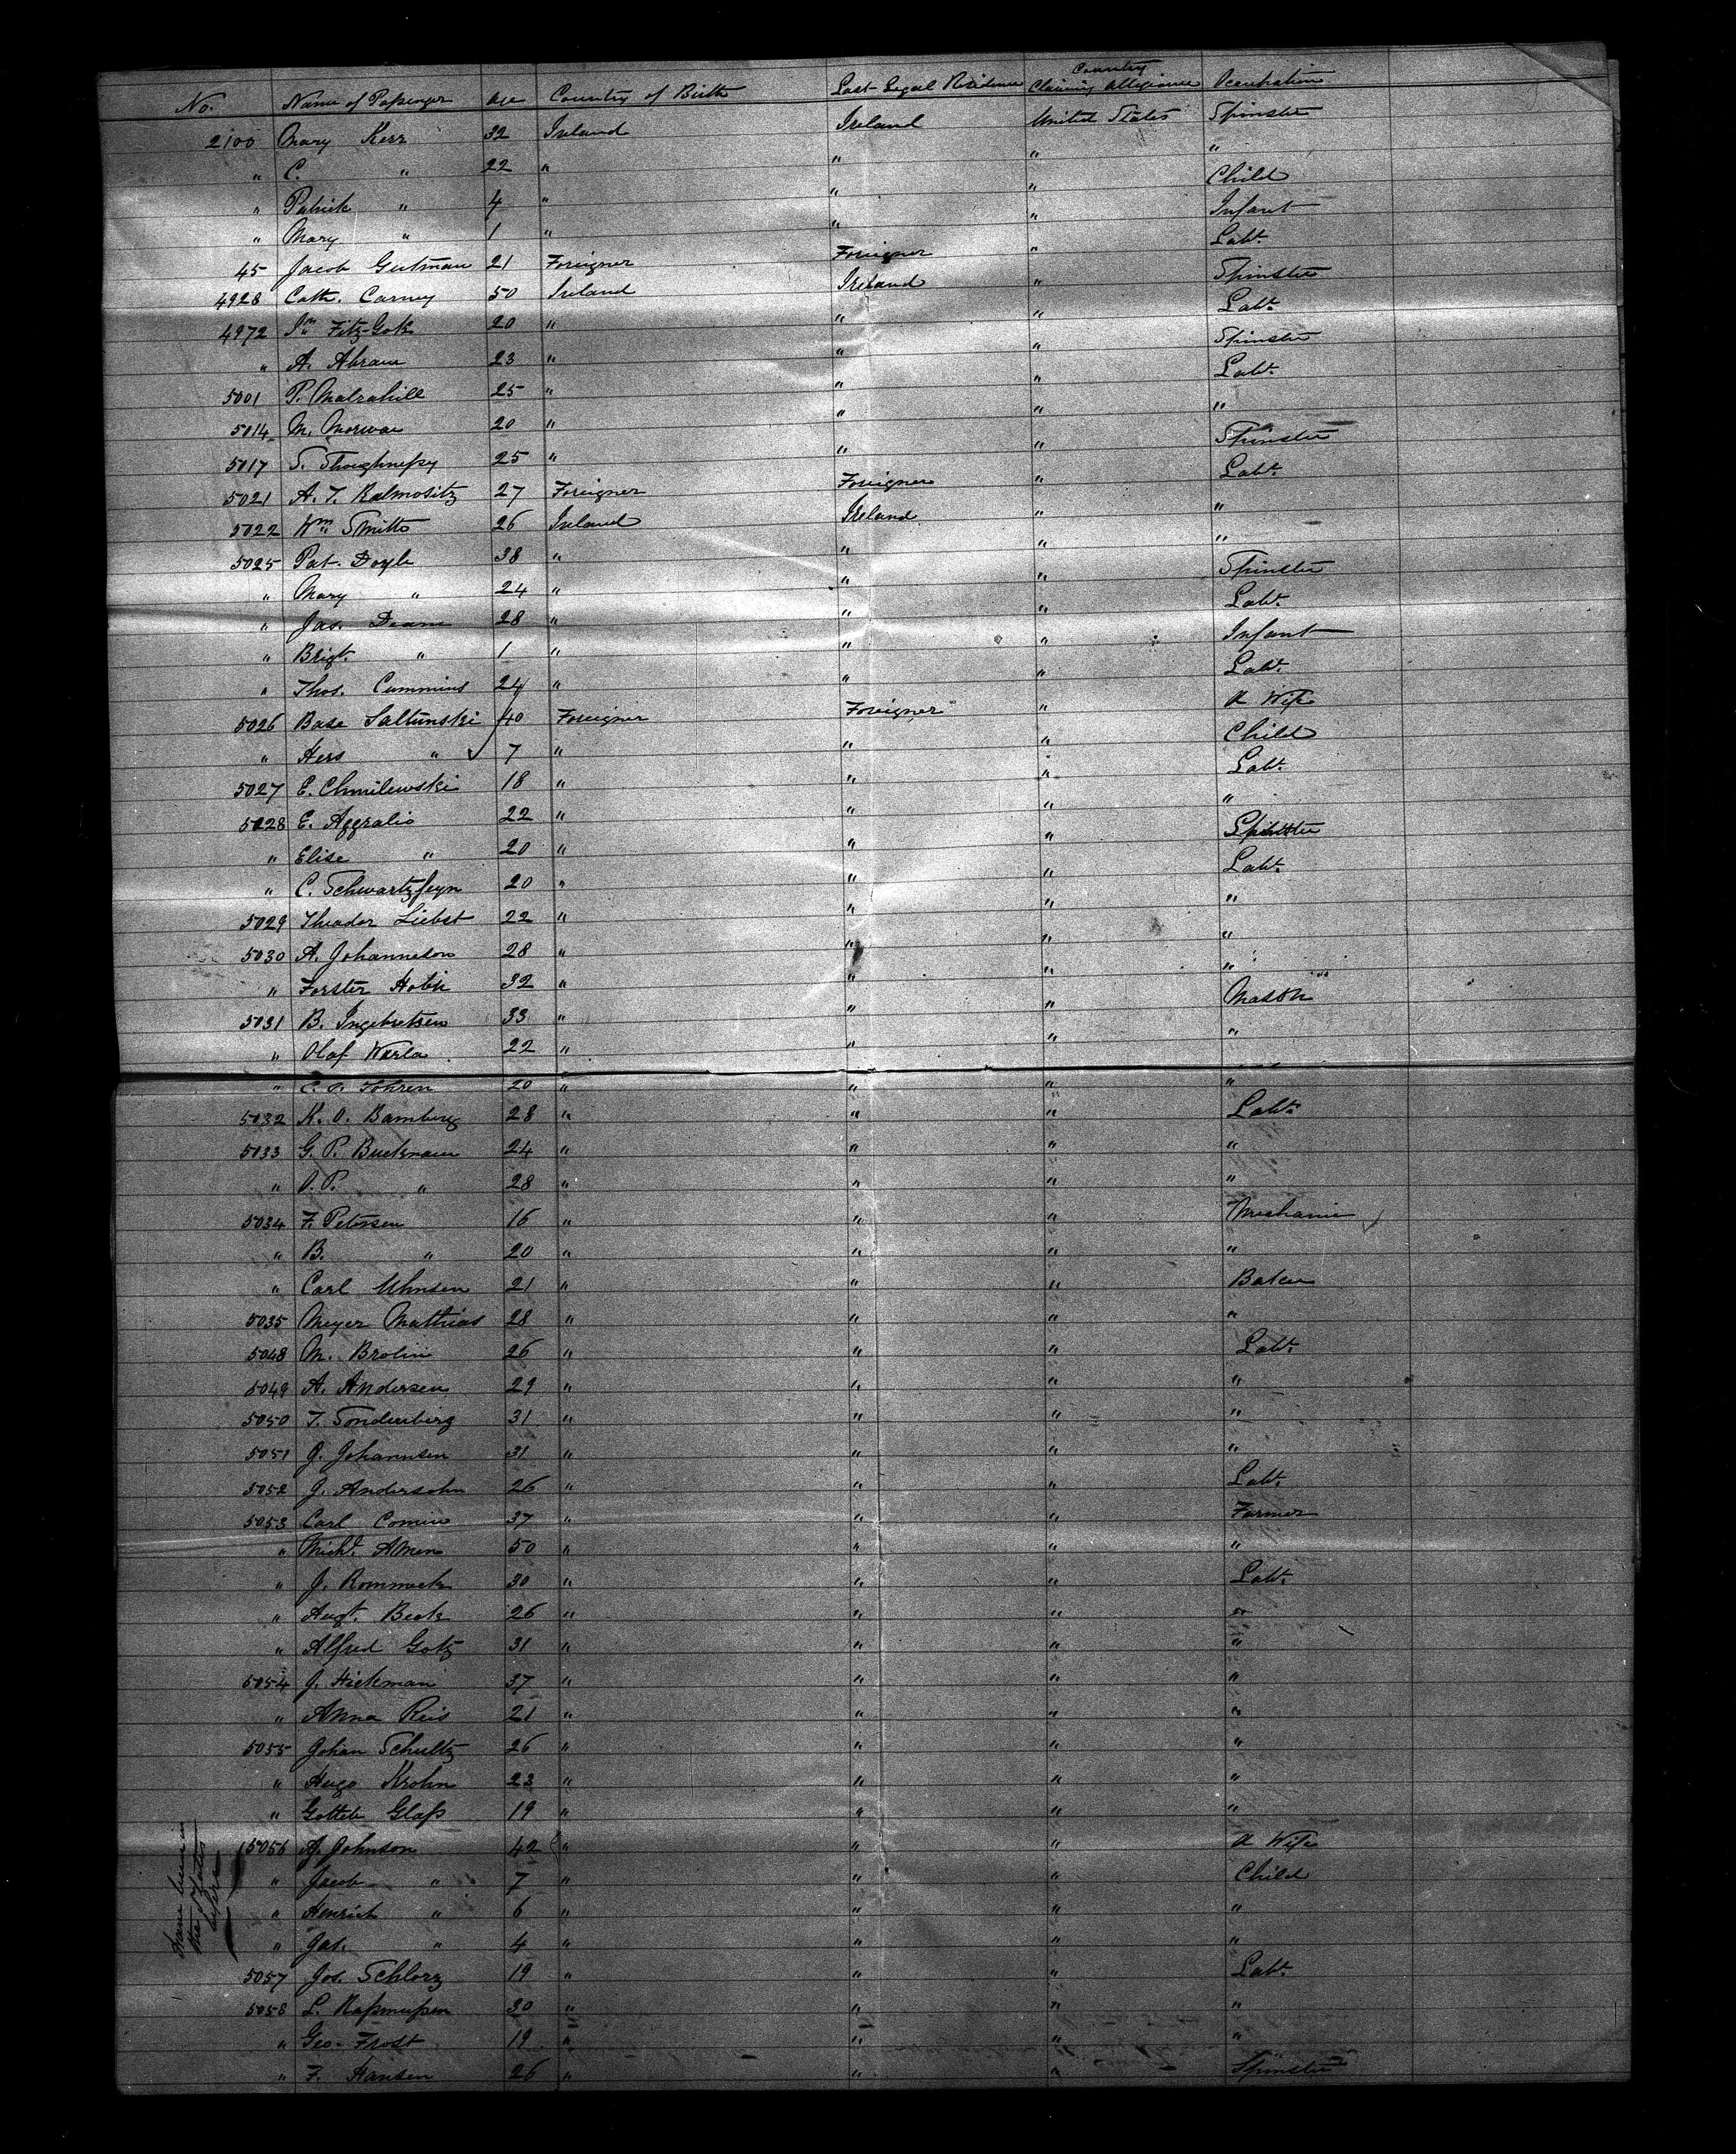 No. Name of Passenger Age Country of Birth Last Legal Residence Country Claiming Allegiance Occupation
2100 Mary Kerr 32 Ireland Ireland United States Spinster
" C. " 22 " " " "
" Patrick " 4 " " " Child
" Mary " 1 " " " Infant
45 Jacob Gutman 21 Foreigner Foreigner " Labr.
4928 Cath. Carney 50 Ireland Ireland " Spinster
4972 Fitz-Gok 20 " " " Labr.
" A. Abram 23 " " " Spinster
5001 P. Malrahill 25 " " " Labr.
5014 M. 20 " " " "
5017 S. Shoughnessy 25 " " " Spinster
5021 A. T. Kalmositz 27 Foreigner Foreigner " Labr.
5022 Wm Smith 26 Ireland Ireland " "
5025 Pat. Doyle 38 " " " "
" Mary " 24 " " " Spinster
" Jas. Deane 28 " " " Labr.
" Brigt. " 1 " " " Infant
" Thos. Cummins 24 " " " Labr.
5026 Base Saltunski 40 Foreigner Foreigner " A Wife
" Hers " 7 " " " Child
5027 E. Chmilewski 18 " " " Labr.
5028 E. Aggralio 22 " " " "
" Elise " 20 " " " Spinster
" C. Schwartzfeyn 20 " " " Labr.
5029 Theador Liebst 22 " " " "
5030 A. Johanneson 28 " " " "
" Forster 32 " " " "
5031 B. Ingebretsen 33 " " " Mason
" Olaf Warla 22 " " " "
" C. P. Tohren 20 " " " "
5032 K. O. Bamberg 28 " " " Labr.
5033 G. P. Bucknam 24 " " " "
" O. P. " 28 " " " "
5034 F. Petersen 16 " " " Mechanic
" B. " 20 " " " "
" Carl 21 " " " Baker
5035 Meyer Mathias 28 " " " "
5048 M. Brolin 26 " " " Labr.
5049 A. Andersen 29 " " " "
5050 T. Sonderberg 31 " " " "
5051 J. Johannsen 31 " " " "
5052 J. Andersohn 26 " " " Labr.
5053 Carl Comin 37 " " " Farmer
" Michl. Amen 50 " " " "
" J. Rommeck 30 " " " Labr.
" Augt. Beck 26 " " " "
" Alfred Gotz 31 " " " "
5054 J. Hickman 37 " " " "
" Anna Reis 21 " " " "
5055 Johan Schultz 26 " " " "
" Hugo Krohn 23 " " " "
" Gottlib Glass 19 " " " "
5056 A. Johnson 42 " " " A Wife
" Jacob " 7 " " " Child
" Henrick " 6 " " " "
" Jas. " 4 " " " "
Have been in
the States
before
5057 Jos. Schlorz 19 " " " Labr.
5058 L. Rassmussen 30 " " " "
" Geo. Frost 19 " " " "
" F. Hansen 26 " " " Spinster